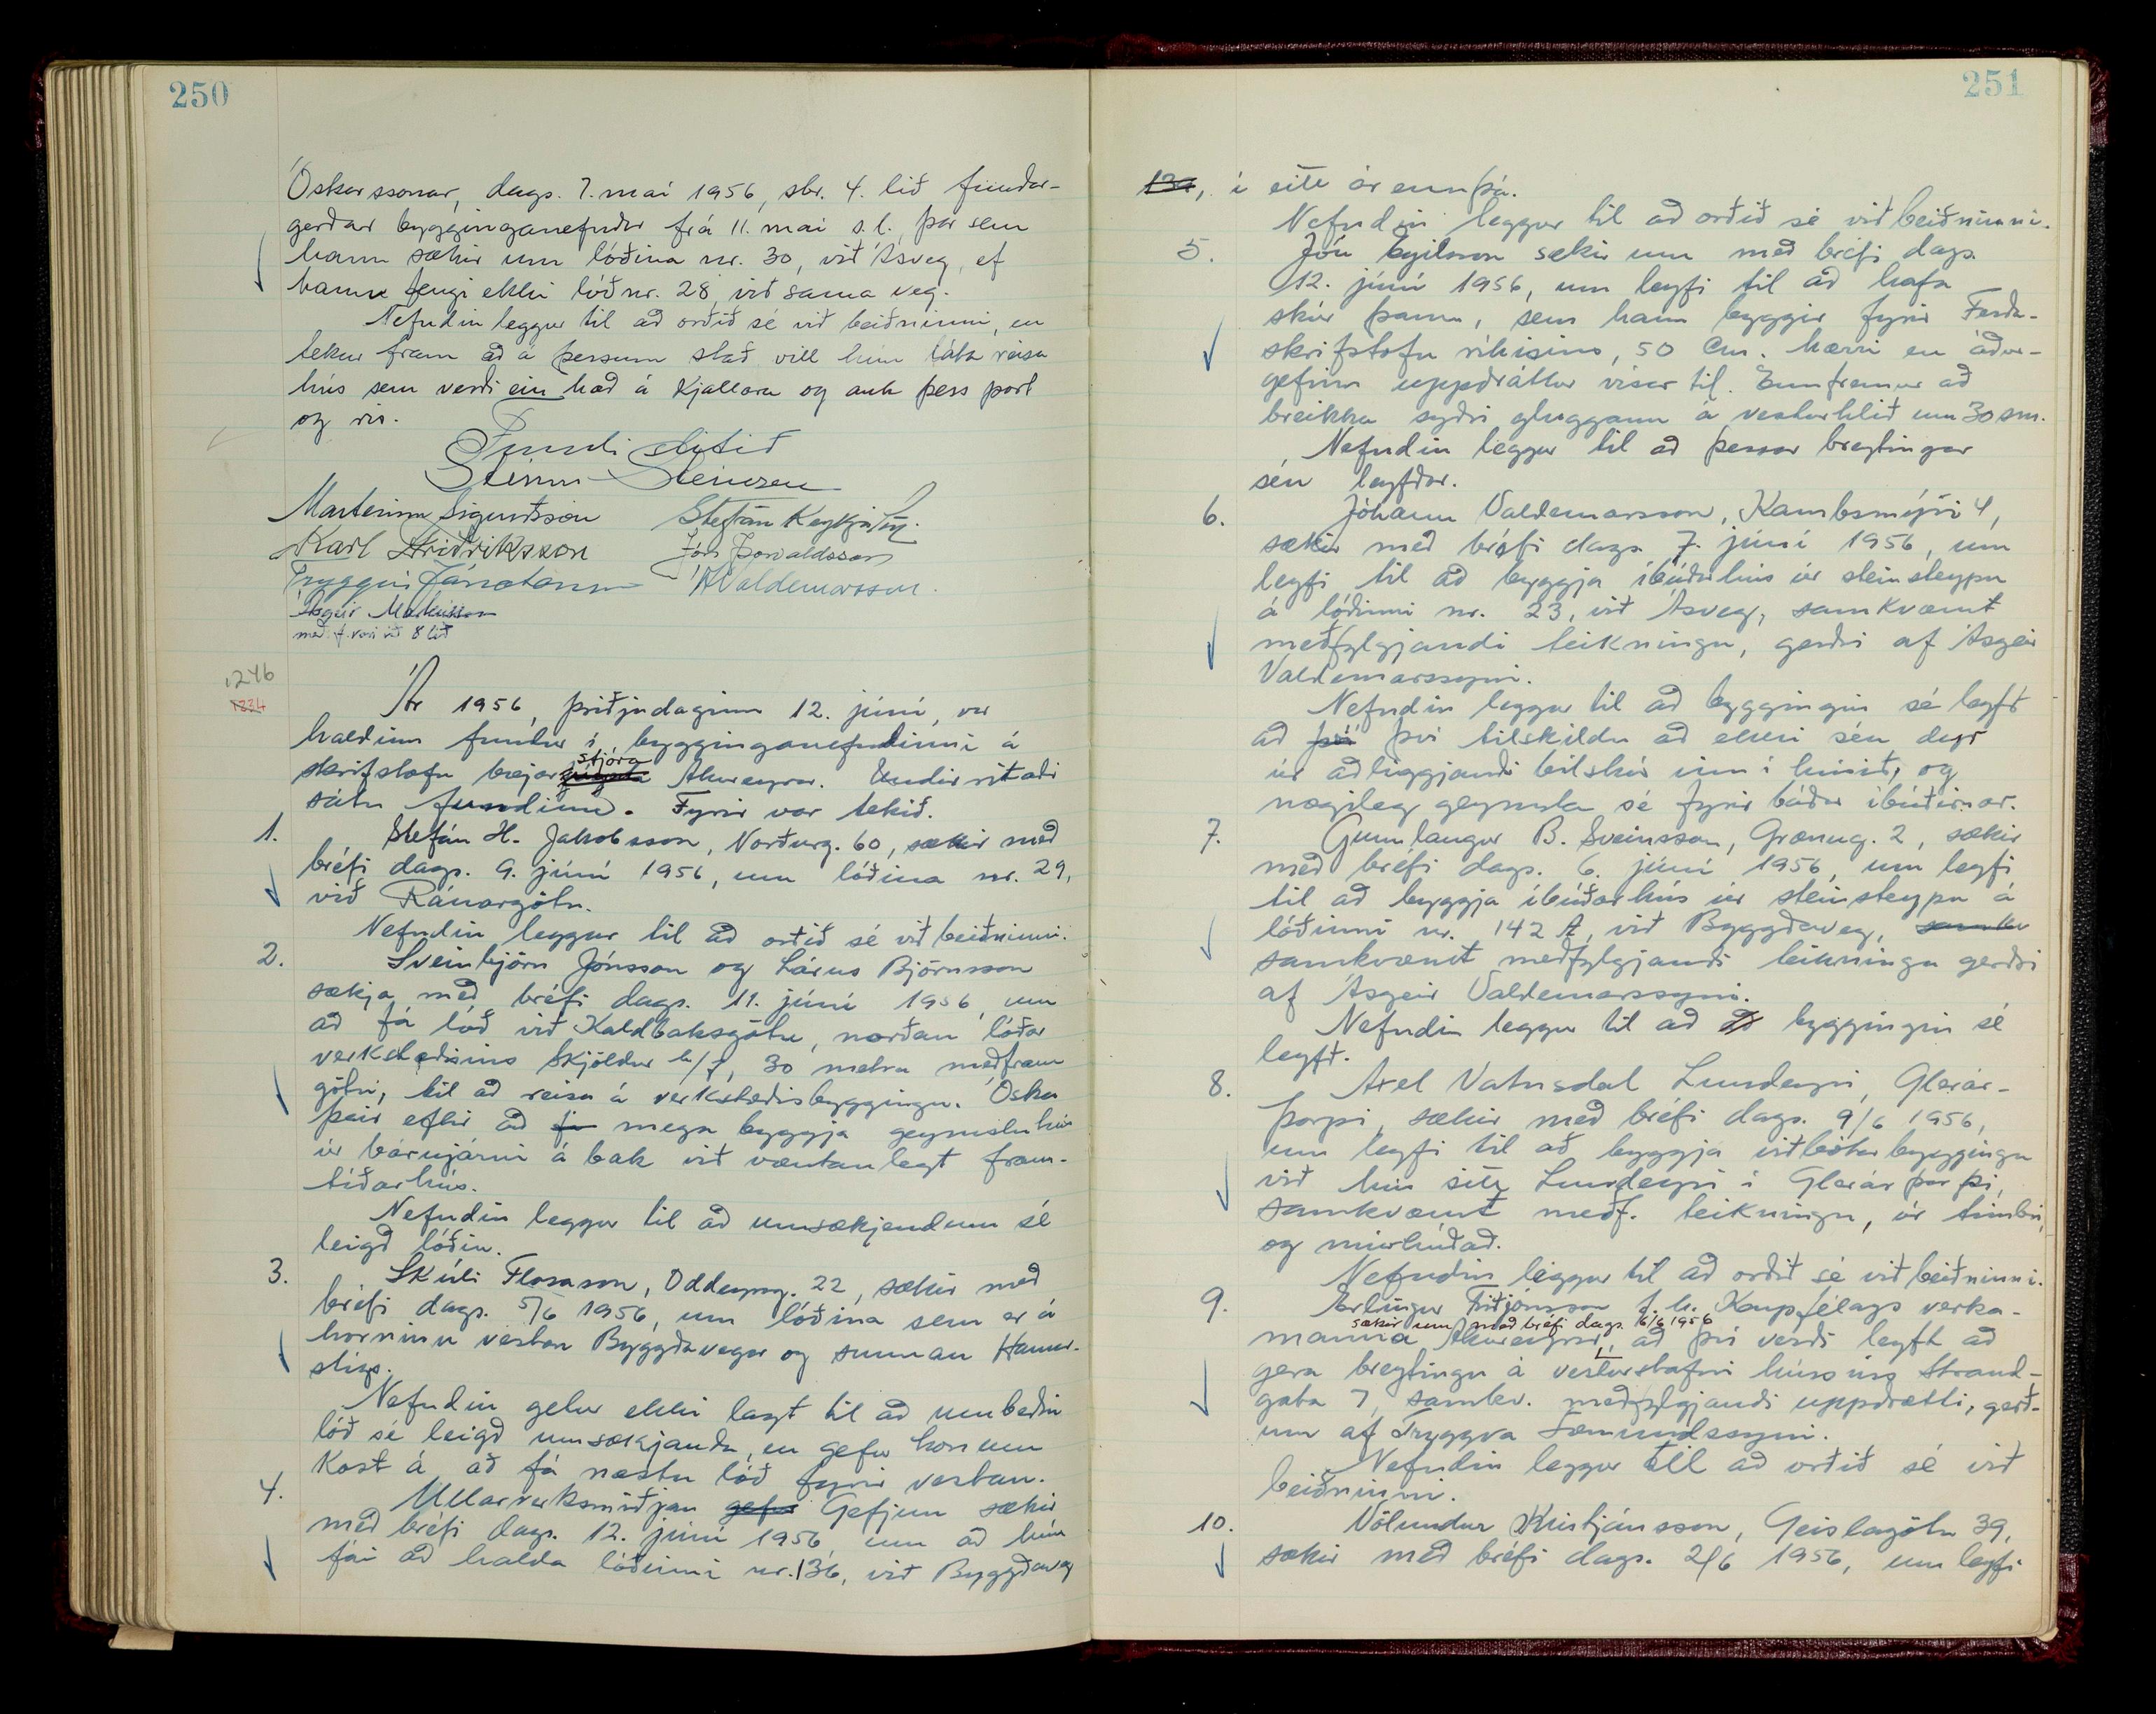 250
Óskarssonar, dags. 7. maí 1956, sbr. 4. lið fundar-
gerðar bygginganefndar frá 11. maí s.l., þar sem
hann sækir um lóðina nr. 30, við Ásveg, ef
hann fengi ekki lóð nr. 28, við sama veg.
Nefndin leggur til að orðið sé við beiðninni, en
tekur fram að á þessum stað vill hún láta reisa
hús sem verði ein hæð á kjallara og auk þess port
og ris.
Fundi slitið
Steinn Steinsen
Marteinn Sigurðsson Stefán Reykjalín.
Karl Friðriksson Jón Þorvaldsson
Tryggvi Jónatansson Á Valdemarsson.
Ásgeir Markússon
með f. vari við 8 lið
1246
1334
Ár 1956, þriðjudaginn 12. júní, var
haldinn fundur í bygginganefndinni á
skrifstofu bæjarstjóra Akureyrar. Undirritaðir
sátu fundinn. Fyrir var tekið.
1. Stefán H. Jakobsson, Norðurg. 60, sækir með
bréfi dags. 9. júní 1956, um lóðina nr. 29,
við Ránargötu.
Nefndin leggur til að orðið sé við beiðninni.
2. Sveinbjörn Jónsson og Lárus Björnsson
sækja með bréfi dags. 11. júní 1956 um
að fá lóð við Kaldbaksgötu, norðan lóðar
verkstæðisins Skjöldur h/f, 30 metra meðfram
götu, til að reisa á verkstæðisbyggingu. Óska
þeir eftir að fá mega byggja geymsluhús
úr bárujárni á bak við væntanlegt fram-
tíðarhús.
Nefndin leggur til að umsækjendum sé
leigð lóðin.
3. Skúli Flosason, Oddeyrarg. 22, sækir með
bréfi dags. 5/6 1956, um lóðina sem er á
horninu vestan Byggðavegar og sunnan Hamar-
stígs.
Nefndin getur ekki lagt til að umbeðin
lóð sé leigð umsækjanda, en gefur honum
kost á að fá næstu lóð fyrir vestan.
4. Ullarverksmiðjan gefur Gefjun sækir
með bréfi dags. 12. júní 1956, um að hún
fái að halda lóðinni nr. 136, við Byggðaveg
251
130, í eitt ár ennþá.
Nefndin leggur til að orðið sé við beiðninni.
5. Jón Egilsson sækir um með bréfi dags.
12. júní 1956, um leyfi til að hafa
skúr þann, sem hann byggir fyrir Ferða-
skrifstofu ríkisins, 50 cm. hærri en áður-
gefinn uppdráttur vísar til. Ennfremur að
breikka syðri gluggann á vesturhlið um 30 sm.
Nefndin leggur til að þessar breytingar
séu leyfðar.
6. Jóhann Valdemarsson, Kambsmýri 4,
sækir með bréfi dags. 7. júní 1956, um
leyfi til að byggja íbúðarhús úr steinsteypu
á lóðinni nr. 23, við Ásveg, samkvæmt
meðfylgjandi teikningu, gerðri af Ásgeir
Valdemarssyni.
Nefndin leggur til að byggingin sé leyfð
að því tilskildu að ekki séu dyr
úr aðliggjandi bílskúr inn í húsið, og
nægileg geymsla sé fyrir báðar íbúðirnar.
7. Gunnlaugur B. Sveinsson, Grænug. 2, sækir
með bréfi dags. 6. júní 1956, um leyfi
til að byggja íbúðarhús úr steinsteypu á
lóðinni nr. 142 A, við Byggðaveg, samkv
samkvæmt meðfylgjandi teikningu gerðri
af Ásgeir Valdemarssyni.
Nefndin leggur til að byggingin sé
leyfð.
8. Axel Vatnsdal Lundeyri, Glerár-
þorpi, sækir með bréfi dags. 9/6 1956,
um leyfi til að byggja viðbótarbyggingu
við hús sitt Lundeyri í Glerárþorpi,
samkvæmt meðf. teikningu, úr timbri,
og múrhúðað.
Nefndin leggur til að orðið sé við beiðninni.
9. Erlingur Friðjónsson f.h. Kaupfélags verka-
sækir um með bréfi dags. 6/6 1956
manna Akureyrar, að því verði leyft að
gera breytingu á vesturstafni hússins Strand-
gata 7, samkv. meðfylgjandi uppdrætti, gerð-
um af Tryggva Sæmundssyni.
Nefndin leggur till að orðið sé við
beiðninni.
10. Völundur Kristjánsson, Geislagötu 39,
sækir með bréfi dags. 2/6 1956, um leyfi